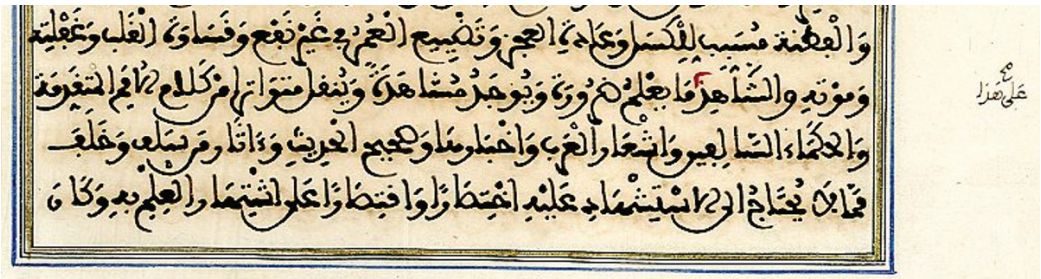 وَالْفِطْنَةِ مُسَبِّبٌ لِلْكَسَلِ وَعَادَةِ الْعَجْزِ وَتَضْيِيعِ الْعُمُرِ فِي غَيْرِ نَفْعٍ وَقَسَاوَةِ الْقَلْبِ وَغَفْلَتِهِ
وَمَوْتِهِ وَالشَّاهِدُ مَا يُعْلَمُ ضَرُورَةً وَيُوجَدُ مُشَاهَدَةً وَيُنْقَلُ مُتَوَاتِرًا مِنْ كَلَامِ الْأُمَمِ الْمُتَقَدِّمَةِ
وَالْحُكَمَاءِ السَّالِفِينَ وَأَشْعَارِ الْعَرَبِ وَأَخْبَارِهَا وَصَحِيحِ الْحَدِيثِ وَءَاثَارِ مَنْ سَلَفَ وَخَلَفَ
مِمَّا لَا يُحْتَاجُ إِلَى الْاسْتِشْهَادِ عَلَيْهِ اخْتِصَارًا وَاقْتِصَارًا عَلَى اشْتِهَارِ الْعِلْمِ بِهِ وَكَانَ
عَلَى هَذَا